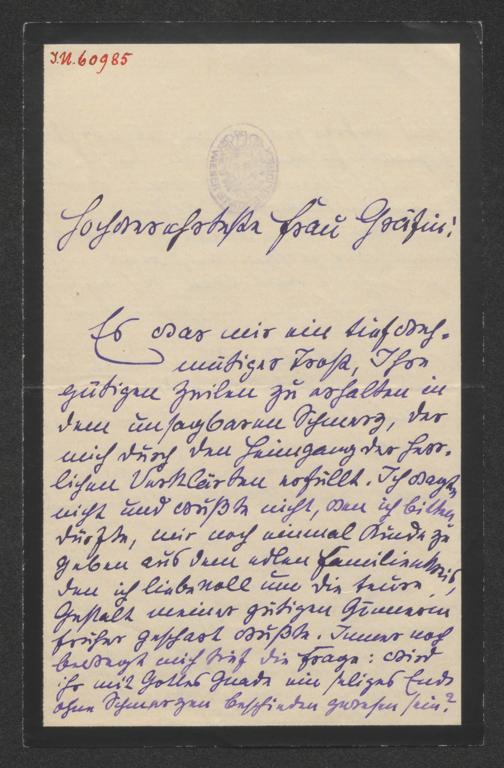 J.N. 60985
Hochverehrteste Frau Gräfin!
Es war mir ein tief weh-
mütiger Trost, Ihre
gütigen Zeilen zu erhalten in
dem unsagbaren Schmerz, der
mich durch den Heimgang der herr-
lichen Verklärten erfüllt. Ich wagte
nicht und wußte nicht, wen ich bitten
durfte, mir noch einmal Kunde zu
geben aus dem edlen Familienkreis,
den ich liebevoll um die teure
Gestalt meiner gütigen Gönnerin
früher geschart wußte. Immer noch
bewegt mich tief die Frage: wird
ihr mit Gottes Gnade ein seliges Ende
ohne Schmerzen beschieden gewesen sein?